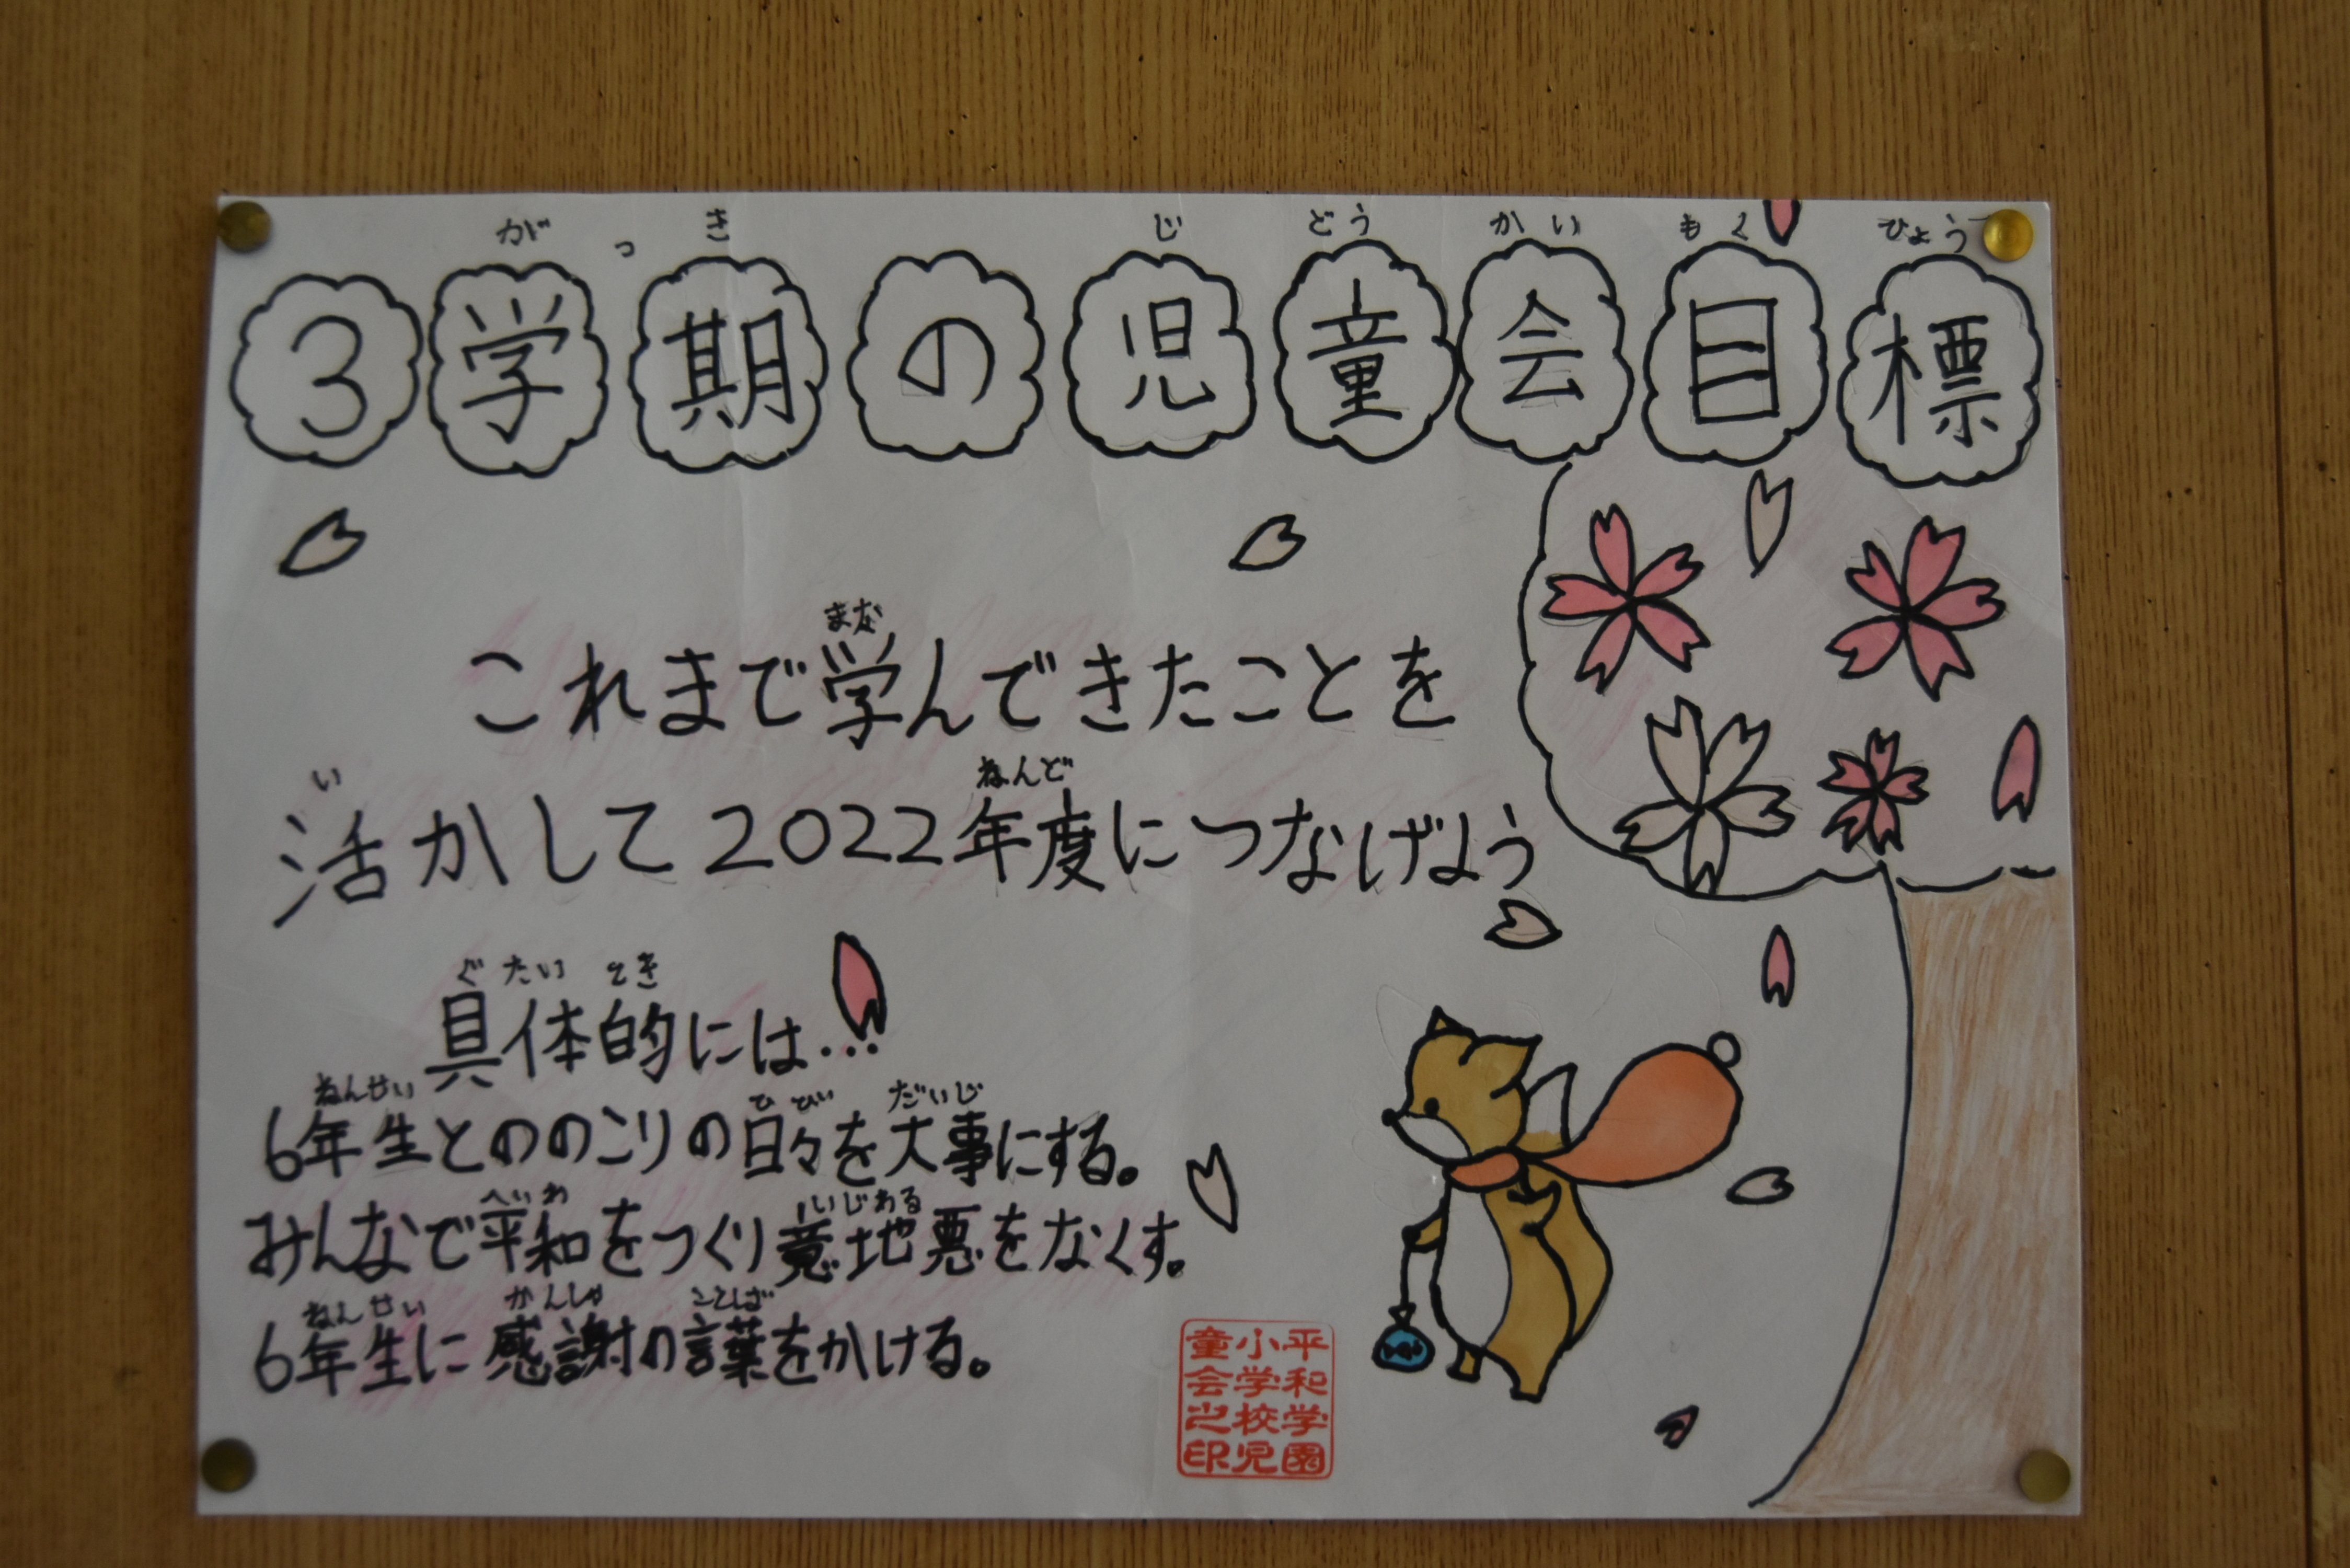 がっき じどうかいもくひょう
3学期の児童会目標
まな
これまで学んできたことを
い ねんど
活かして2022年度につなげよう
ぐたいてき
具体的には...
ねんせい ひび だいじ
6年生とののこりの日々を大事にする。
へいわ いじわる
みんなで平和をつくり意地悪をなくす。
ねんせい かんしゃ ことば
6年生に感謝の言葉をかける。
平和学園
小学校児
童会之印